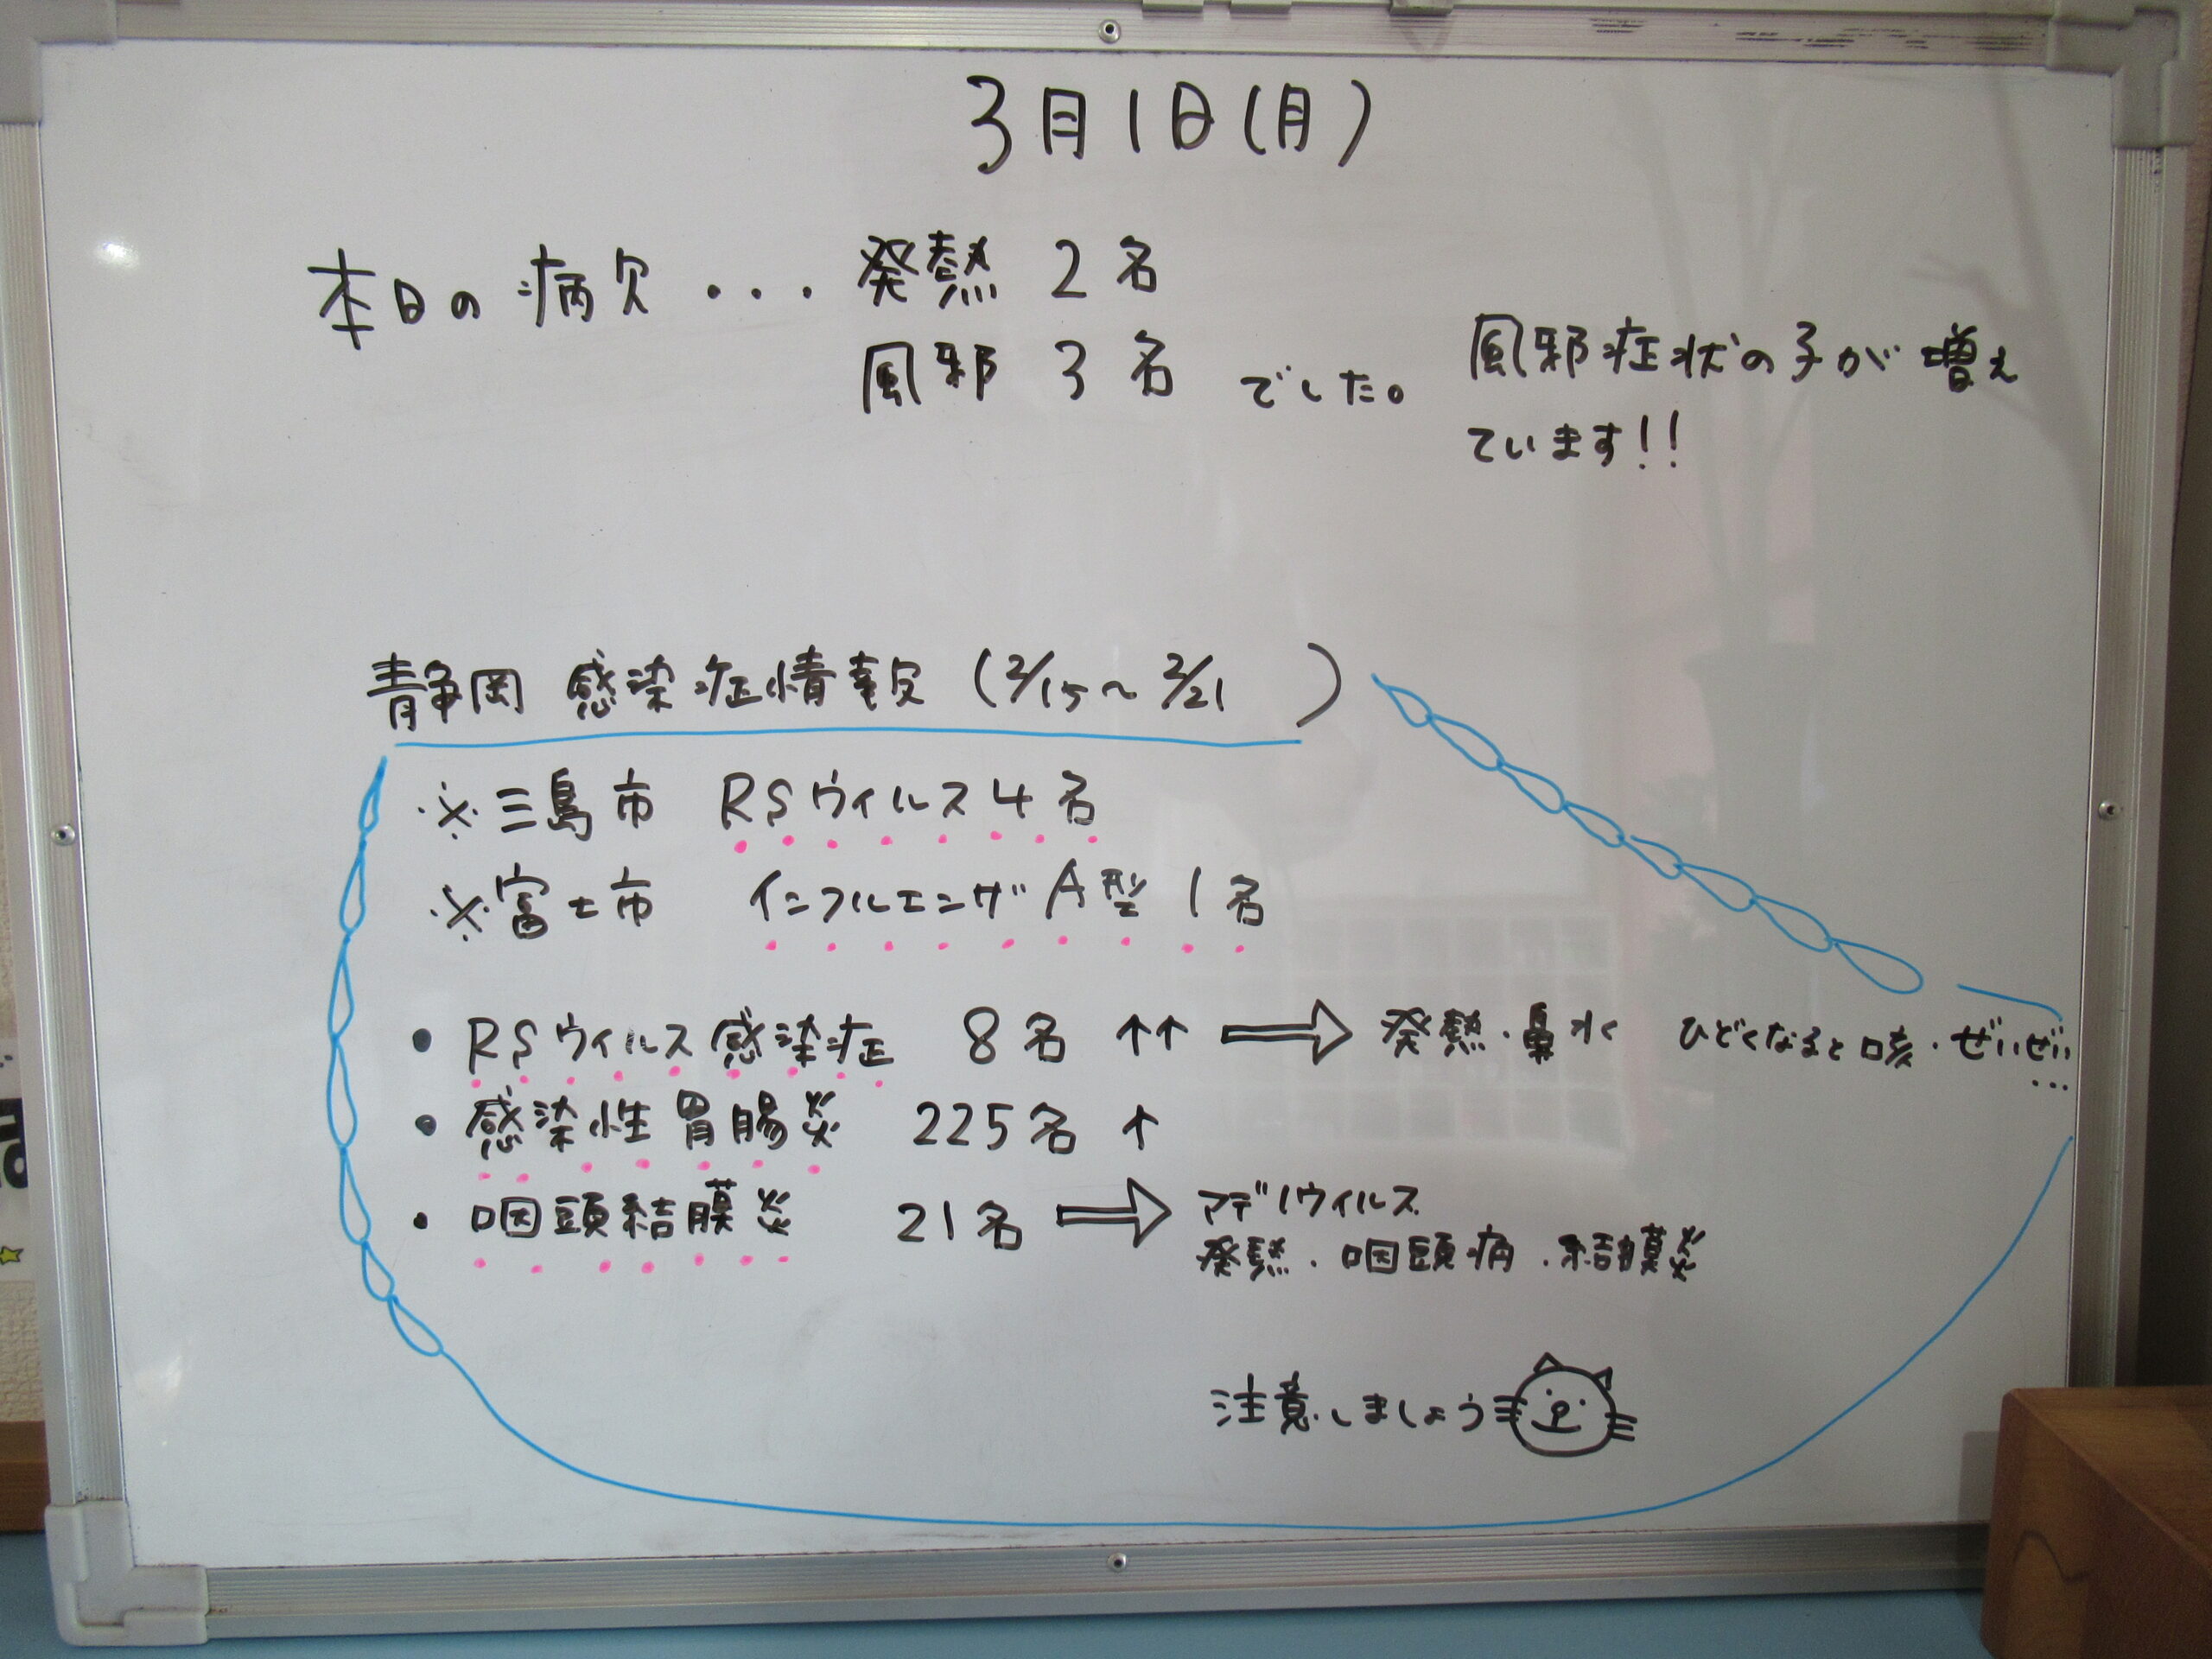 3月1日(月)
本日の病欠・・・発熱 2名
風邪 3名 でした。
風邪症状の子が増え
ています!!
静岡 感染症情報 (2/15〜2/21 )
※三島市 RSウィルス4名
※富士市 インフルエンザA型 1名
・RSウィルス感染症 8名 ↑↑ ⇒ 発熱・鼻水 ひどくなると咳・ぜいぜい
...
・感染性胃腸炎 225名 ↑
・咽頭結膜炎 21名 ⇒ アデノウィルス
発熱・咽頭病・結膜炎
注意しましょう